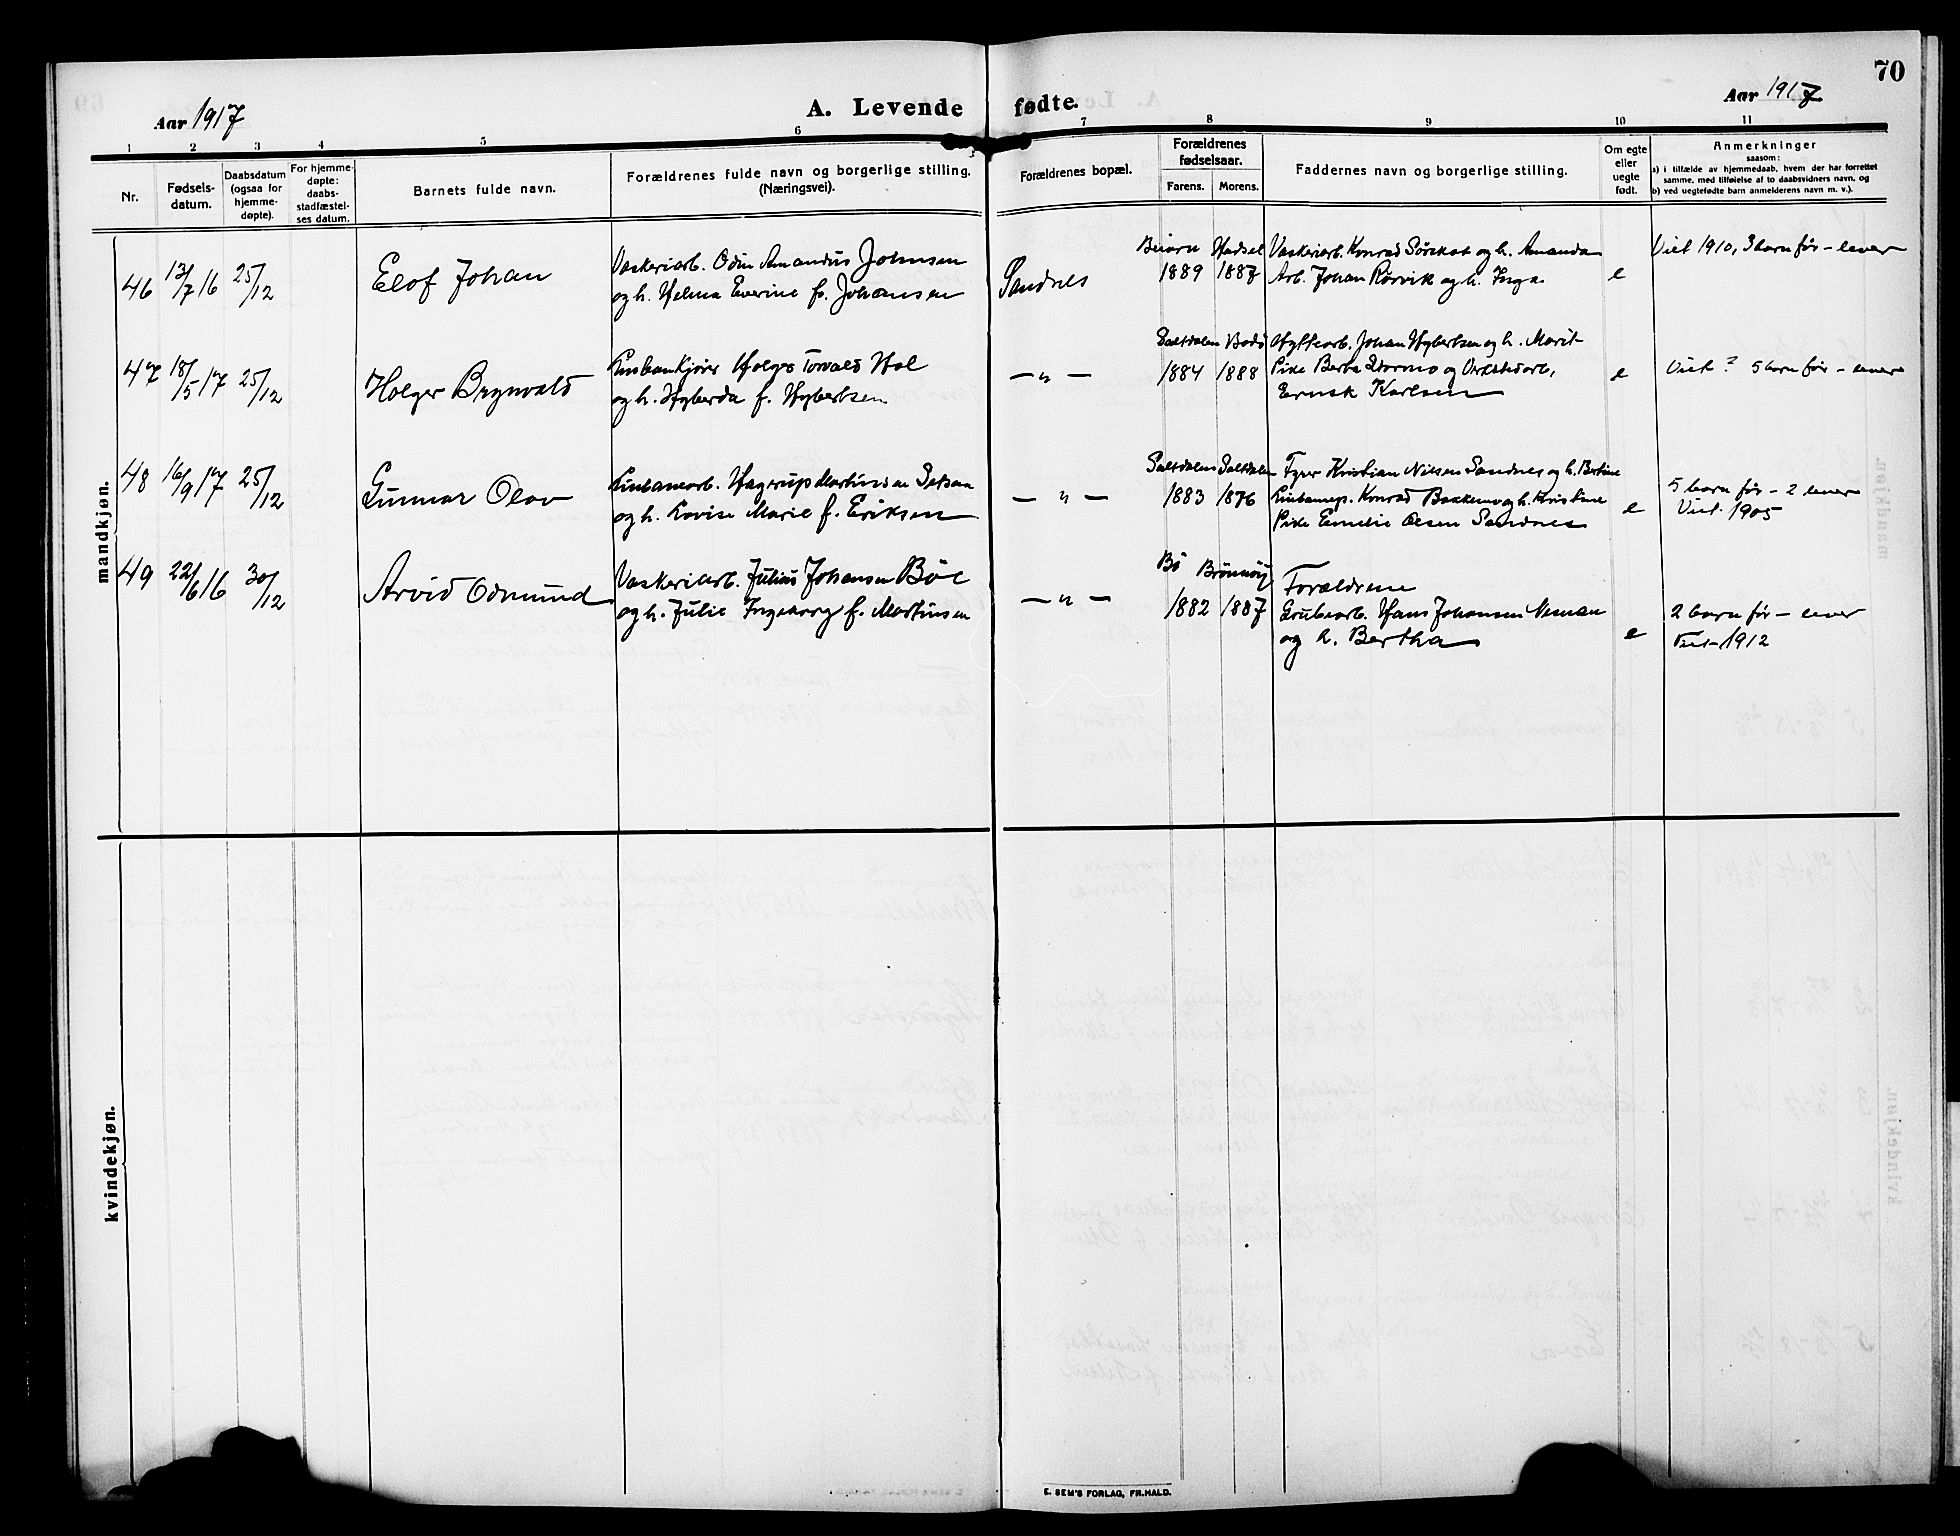 70
Aar 1917
A. Levende fødte.
Aar 1917
1 2 3 4 5 6 7 8 9 10 11
Nr.
Fødsels-
datum.
Daabsdatum
(ogsaa for
hjemme-
døpte).
For hjemme-
døpte:
daabs-
stadfæstel-
ses datum.
Barnets fulde navn.
Forældrenes fulde navn og borgerlige stilling.
(Næringsvei).
Forældrenes bopæl.
Forældrenes
fødselsaar.
Farens. Morens.
Faddernes navn og borgerlige stilling.
Om egte
eller
uegte
født.
Anmerkninger
saasom:
a) i tilfælde av hjemmedaab, hvem der har forrettet
samme, med tilføielse af to daabsvidners navn, og
b) ved uegtefødte barn anmelderens navn m. v.).
mandkjøn.
46 13/7 16 25/12 Elof Johan
Vaskeriarb. Odin Amandus Johnsen
og h. Helma Everine f. Johansen
Sandnes
Beiarn Hadsel
1889 1887
Vaskeriarb. Konrad og h. Amanda
Arb. Johan Rørvik og h. Inga
e
Viet 1910, 3 barn før – lever
47 18/5 17 25/12 Holger Brynvald
Linbankjører Holger Torvald Hol
og h. Hyberda f. Hybertsen
— " —
Saltdalen Bodø
1884 1888
Hyttearb. Johan Hybertsen og h. Marit
Pike Berta Stormo og
Ernst Karlsen
e
Viet ? 5 barn før – lever
48 16/9 17 25/12 Gunnar Olav
Linbanearb. Hagerup Martinsen
og h. Lovise Marie f. Eriksen
— " —
Saltdalen Saltdalen
1883 1876
Fyrer Kristian Nilsen Sandnes og h. Bertine
Konrad Bakkemo og h. Kristine
Pike Emelie Olsen Sandnes
e
5 barn før – 2 lever
Viet 1905
49 22/6 16 30/12 Arvid Odmund
Vaskeriarb. Julius Johansen Bøe
og h. Julie Ingeborg f. Martinsen
— " —
Bø Brønnøy
1882 1887
Forældrene
Grubearb. Hans Johansen Nesnan
og h. Bertha
e
2 barn før – lever
Viet 1912
kvindekjøn.
E. SEM'S FORLAG, FR.HALD.